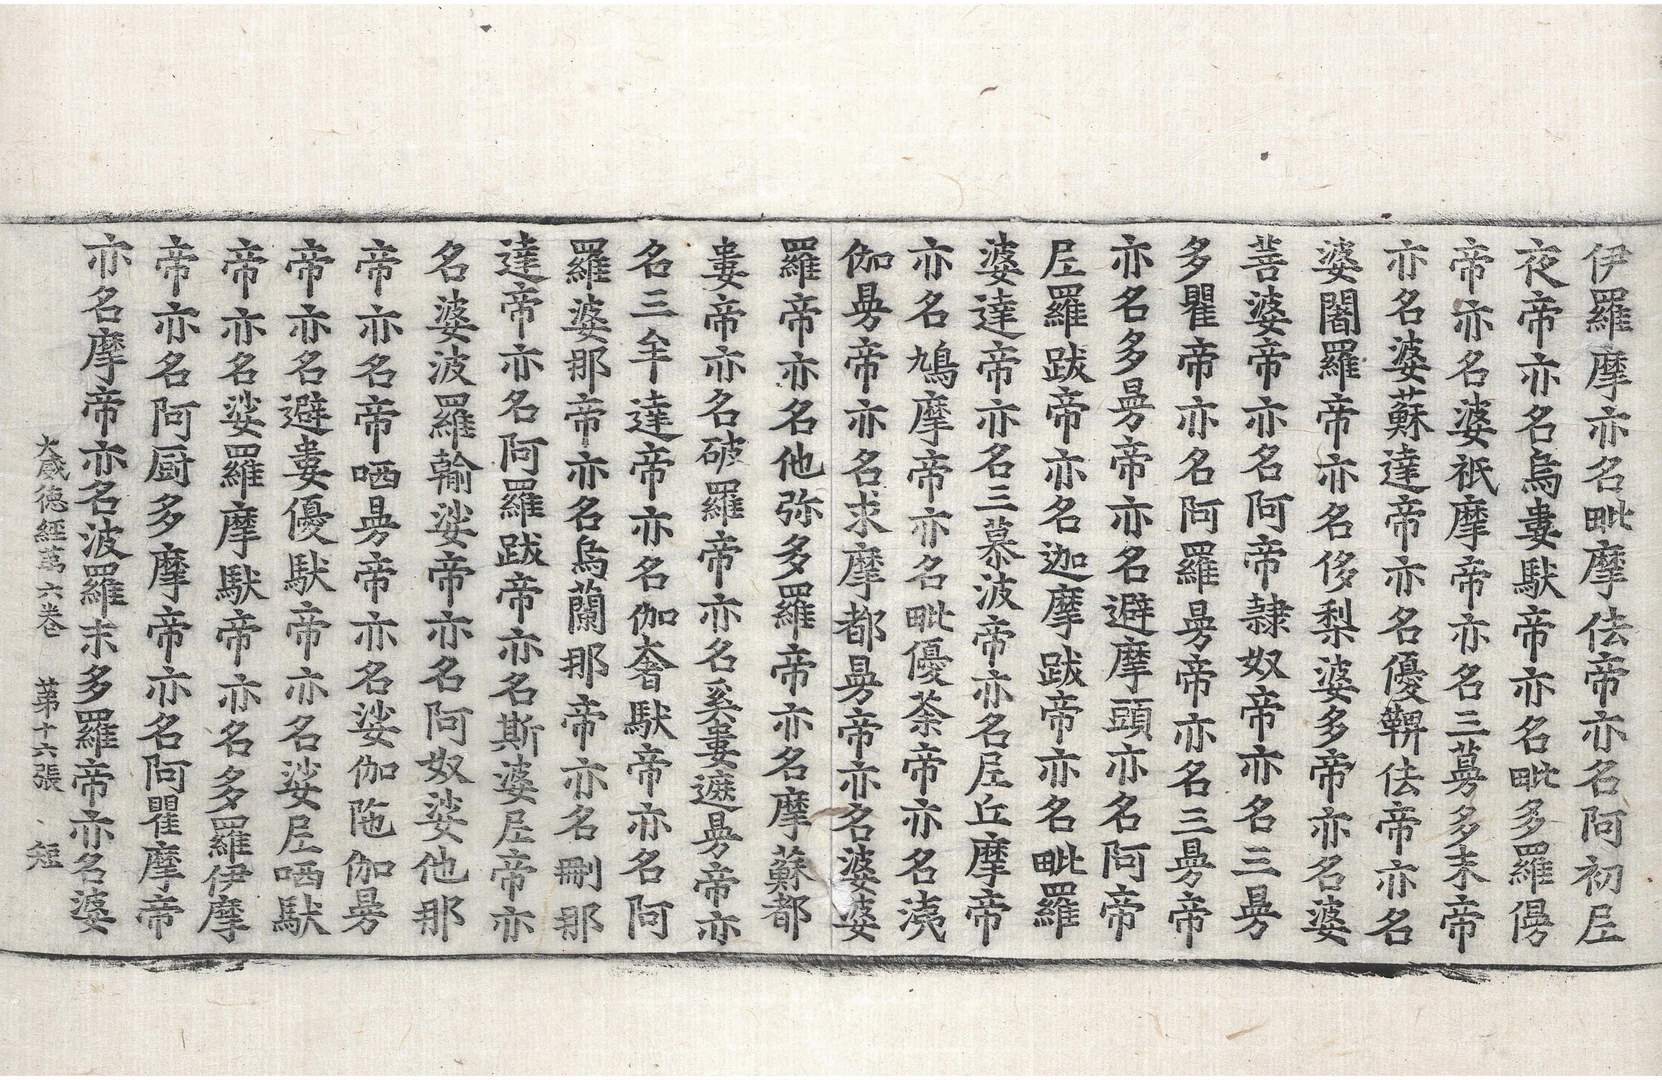 伊羅摩亦名毗摩佉帝亦名阿初𡰱
夜帝亦名烏婁馱帝亦名毗多羅僈
帝亦名婆祇摩帝亦名三蔓多末帝
亦名婆蘇達帝亦名優鞞佉帝亦名
婆闍羅帝亦名侈梨婆多帝亦名婆
菩婆帝亦名阿帝隷奴帝亦名三曼
多瞿帝亦名阿羅曼帝亦名三曼帝
亦名多曼帝亦名避摩頭亦名阿帝
𡰱羅跋帝亦名迦摩跋帝亦名毗羅
婆達帝亦名三慕波帝亦名𡰱丘摩帝
亦名鳩摩帝亦名毗優荼帝亦名洟
伽曼帝亦名求摩都曼帝亦名婆婆
羅帝亦名他弥多羅帝亦名摩蘇都
婁帝亦名破羅帝亦名奚婁遮曼帝亦
名三牟達帝亦名伽奢馱帝亦名阿
羅婆那帝亦名烏蘭那帝亦名刪那
達帝亦名阿羅跋帝亦名斯婆𡰱帝亦
名婆波羅輸娑帝亦名阿奴娑他那
帝亦名帝哂曼帝亦名娑伽陁伽曼
帝亦名避婁優馱帝亦名娑𡰱哂馱
帝亦名娑羅摩馱帝亦名多羅伊摩
帝亦名阿厨多摩帝亦名阿瞿摩帝
亦名摩帝亦名波羅末多羅帝亦名婆
大威德經苐六卷　苐十六張